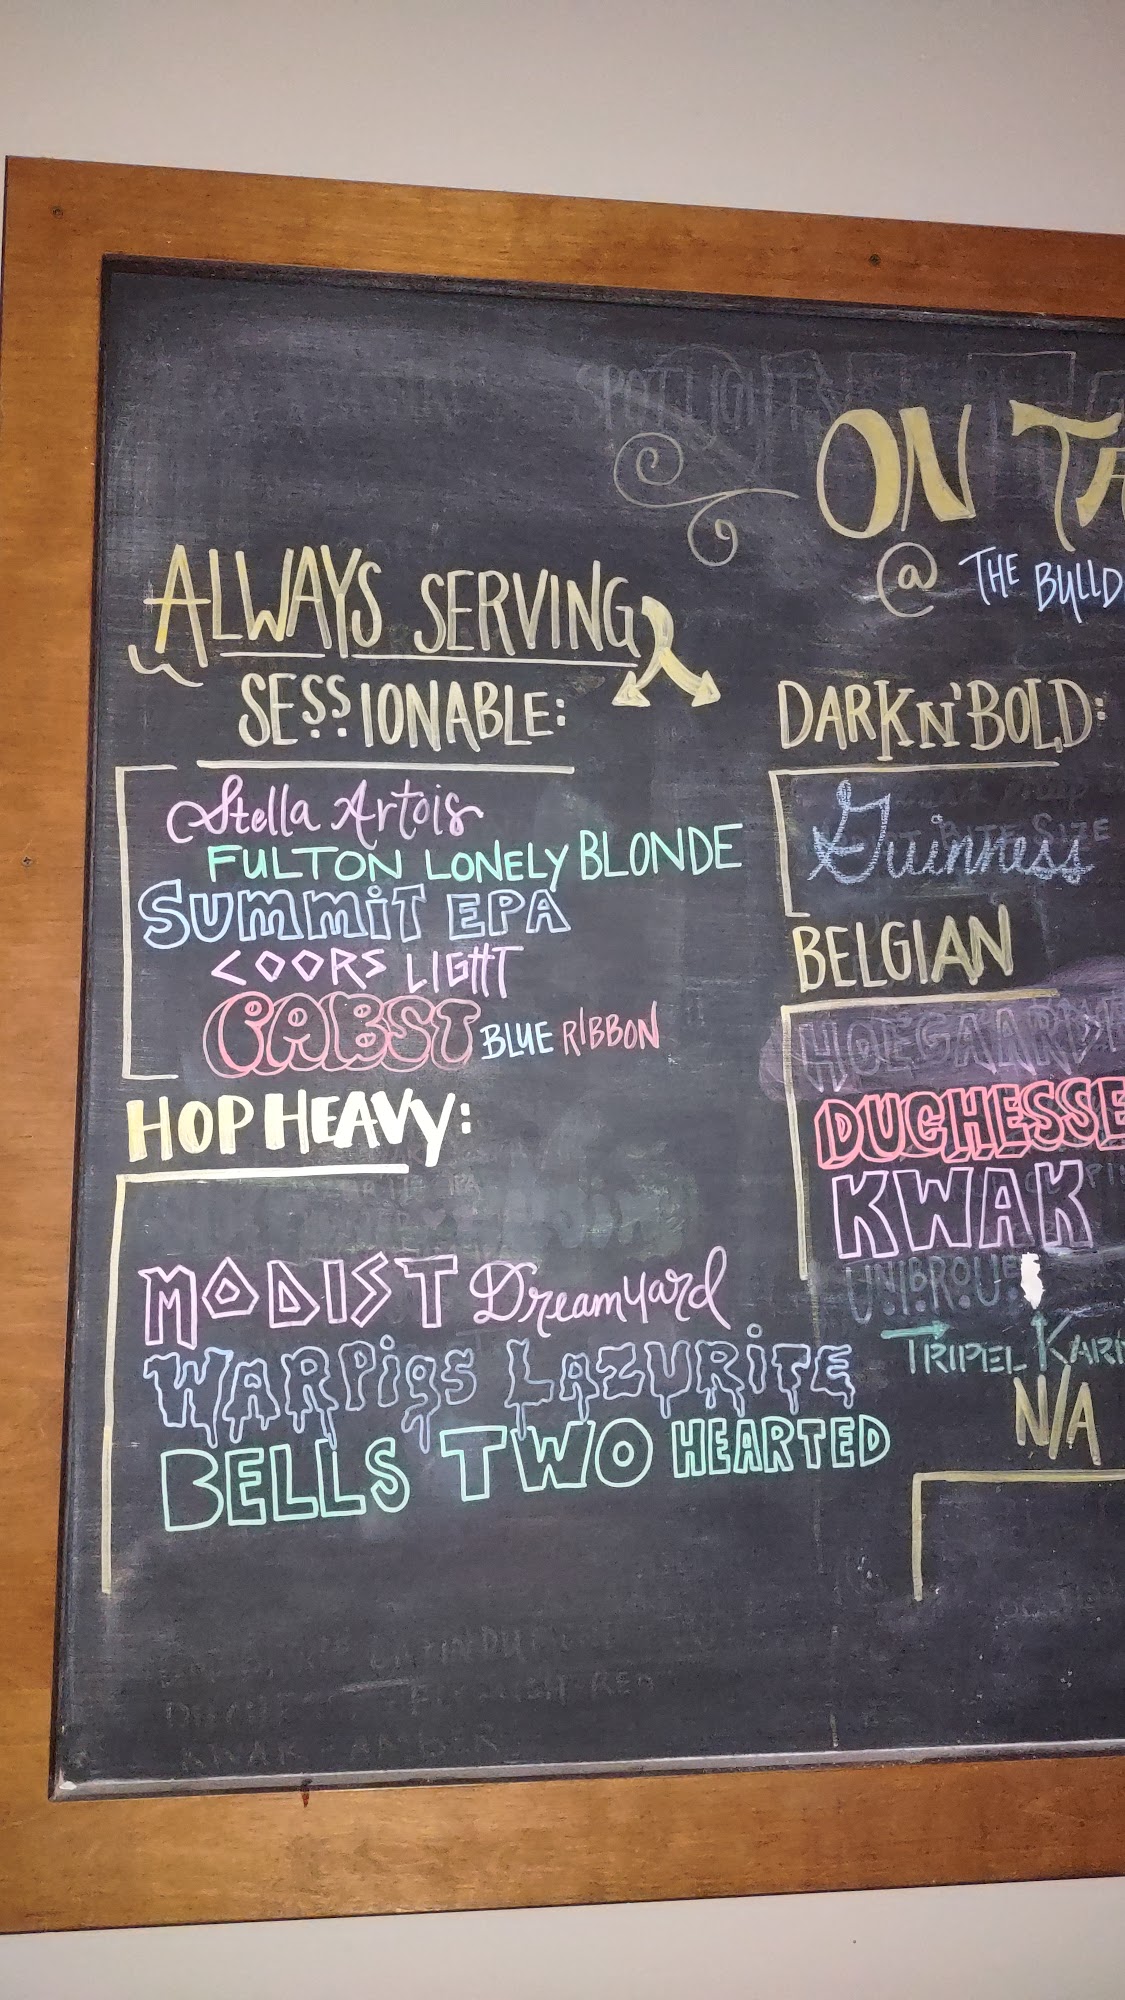 ON TA
@ THE BULLD
ALWAYS SERVING
SESSIONABLE:
Stella Artois
FULTON LONELY BLONDE
SUMMIT EPA
COORS LIGHT
PABST BLUE RIBBON
HOP HEAVY:
MODIST Dreamyard
WARPIGS LAZURITE
BELLS TWO HEARTED
DARK N' BOLD:
Guinness
BELGIAN
HOEGAARD
DUCHESSE
KWAK
UNIBROUE
TRIPEL KAR
N/A